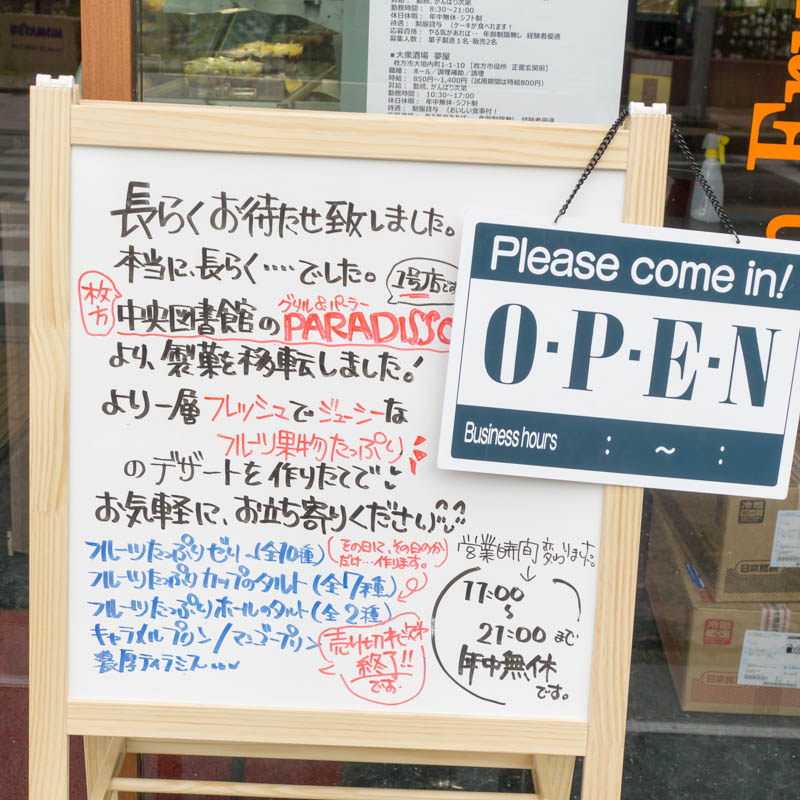 勤務時間： 8:30～21:00
休日休暇： 年中無休・シフト制
待遇： 制服貸与 （ケーキが食べれます！
応募資格： やる気があれば・・ 年齢制限無し 経験者優遇
募集人数： 菓子製造１名・販売２名
■大衆酒場 夢屋
枚方市大垣内町1-1-10 【枚方市役所 正面玄関前】
職種： ホール／調理補助／調理
時給： 850円～1,400円（試用期間は時給800円）
昇給： 勤続、がんばり次第
勤務時間： 10:30～17:00
休日休暇： 年中無休・シフト制
待遇： 制服貸与 （おいしい食事付！
長らくお待たせ致しました。
本当に、長らく‥‥でした。
1号店です
枚方
中央図書館の
グリル&パーラー
PARADISSO
より、製菓を移転しました！
より一層フレッシュでジューシーな
フルーツ果物たっぷり
のデザートを作りたてで
お気軽に、お立ち寄りください
フルーツたっぷりゼリー（全10種）
フルーツたっぷりカップのタルト（全7種）
フルーツたっぷりホールのタルト（全2種）
キャラメルプリン／マンゴープリン
濃厚ティラミス
（その日に、その日の分だけ…作ります。）
売り切れ次第
終了!!
です。
営業時間変わりました。
11:00
～
21:00まで
年中無休
です。
Please come in!
O・P・E・N
Business hours : ～ :